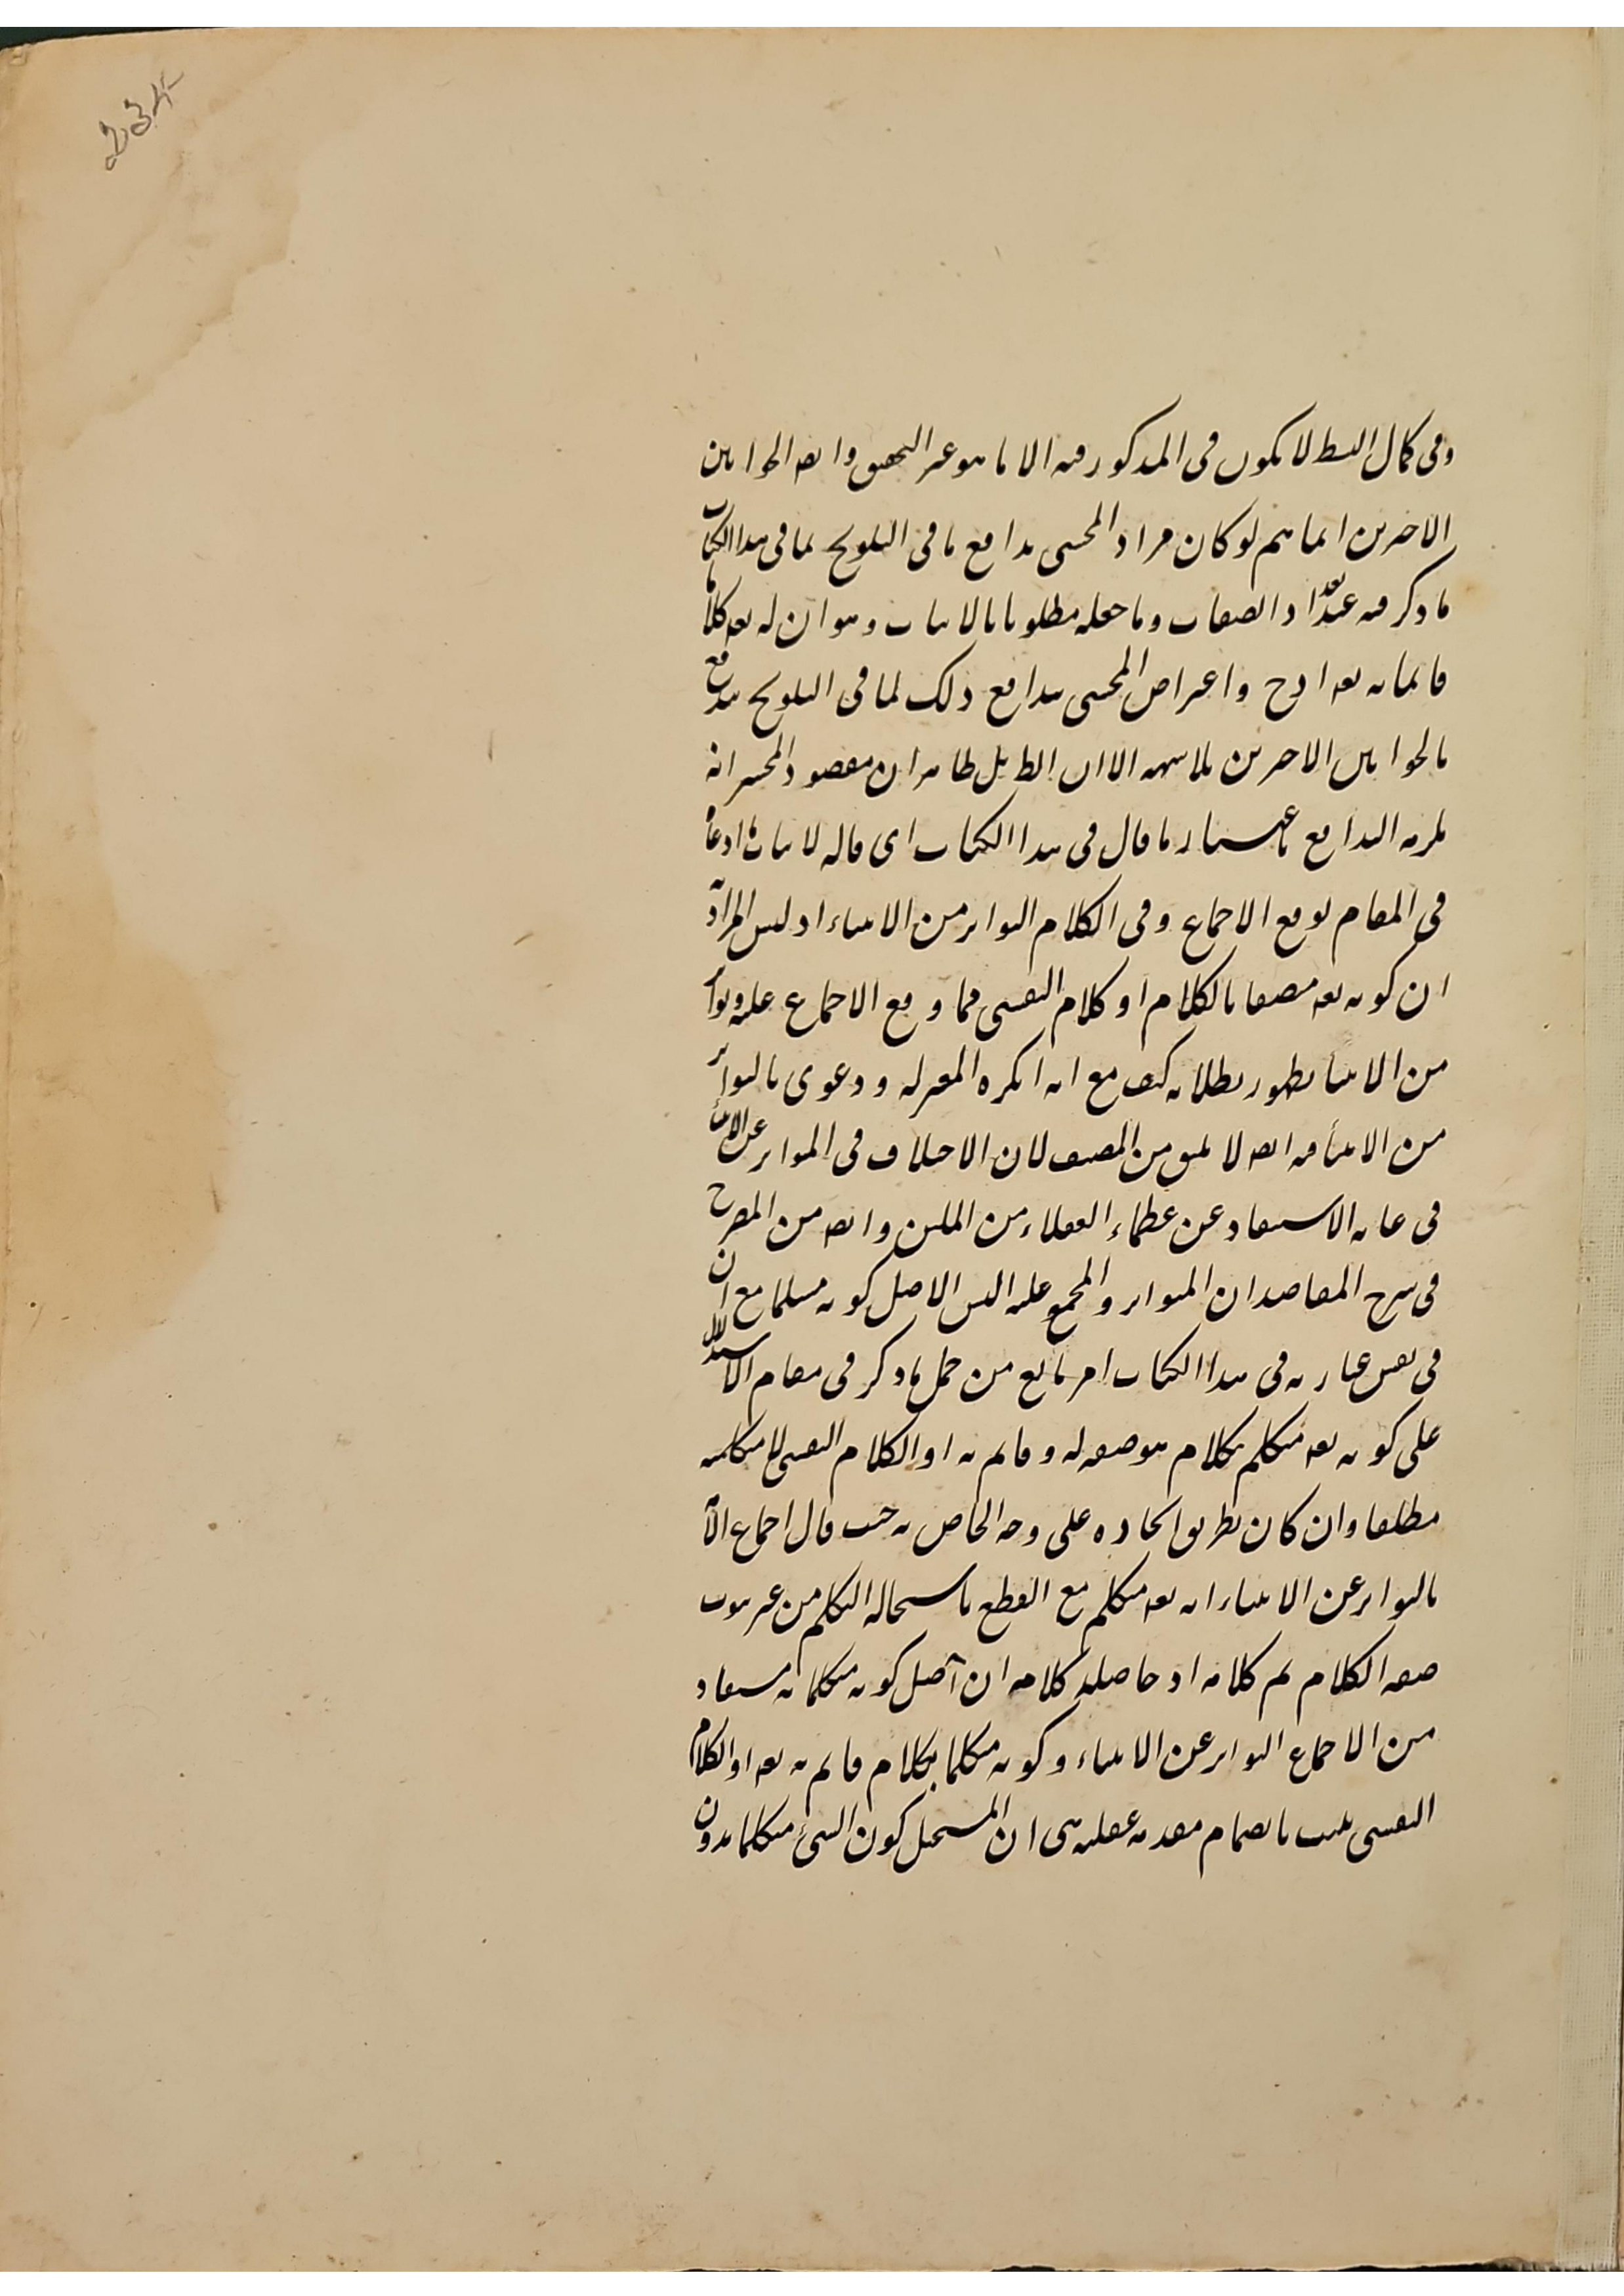 وفى كمال البسط لا يكون فى المذكور فيه الا ما هو عير التحقيق وايضه الجوابين
الاخيرين انما يتم لو كان مراد المحشى تدافع ما فى التلويح لما فى هذا الكتاب
ما ذكر فيه عند تعداد الصفات وما جعله مطلوبا بالاثبات وهو ان له تعه كلاما
قائما به تعه اذح واعتراض المحشى بتدافع ذلك لما فى التلويح يندفع
بالجوابين الاخيرين بلا شبهة الا ان الظ بل ظاهر ان مقصود المحشى انه
يلزمه التدافع باعتبار ما قال فى هذا الكتاب اى قاله لاثبات ادعاه
فى المقام بوقع الاجماع وفى الكلام التواتر من الانبياء اذ ليس المراد
ان كونه تعه متصفا بالكلام او كلام النفسى مما وقع الاجماع عليه وتواتر
من الانبيا بظهور بطلانه كيف مع انه انكره المعتزله ودعوى بالتواتر
من الانبيأ فيه ايضه لا يليق من المصنف لان الاختلاف فى المتواتر عن الانبيأ
فى غايه الاستبعاد عن عظماء العقلاء من المليين وايضه من المصرح
فى شرح المقاصد ان المتواتر والمجمع عليه اليس الاصل كونه متكلما مع ان
فى نفس عبارته فى هذا الكتاب امر مانع من حمل ما ذكر فى مقام الاستدلال
على كونه تعه متكلم بكلام هو صفه له وقايم به او الكلام النفسى متكلميه
مطلقا وان كان بطريق ايجاده على وجه الخاص به حيث قال اجماع الا
بالتواتر عن الانبياء انه تعه متكلم مع القطع باستحاله التكلم من غير ثبوت
صفه الكلام تم كلامه اذ حاصله كلامه ان اصل كونه متكلما به مستفاد
من الاجماع التواتر عن الانبياء وكونه متكلما بكلام قايم به تعه او الكلام
النفسى يثبت بانضمام مقدمه عقليه هى ان المستحيل كون الشئ متكلما بدون